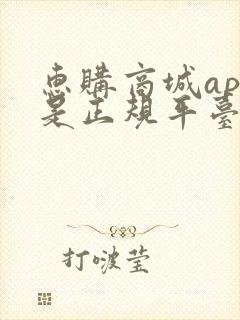 惠購商城ap
是正規平臺
打啵莹